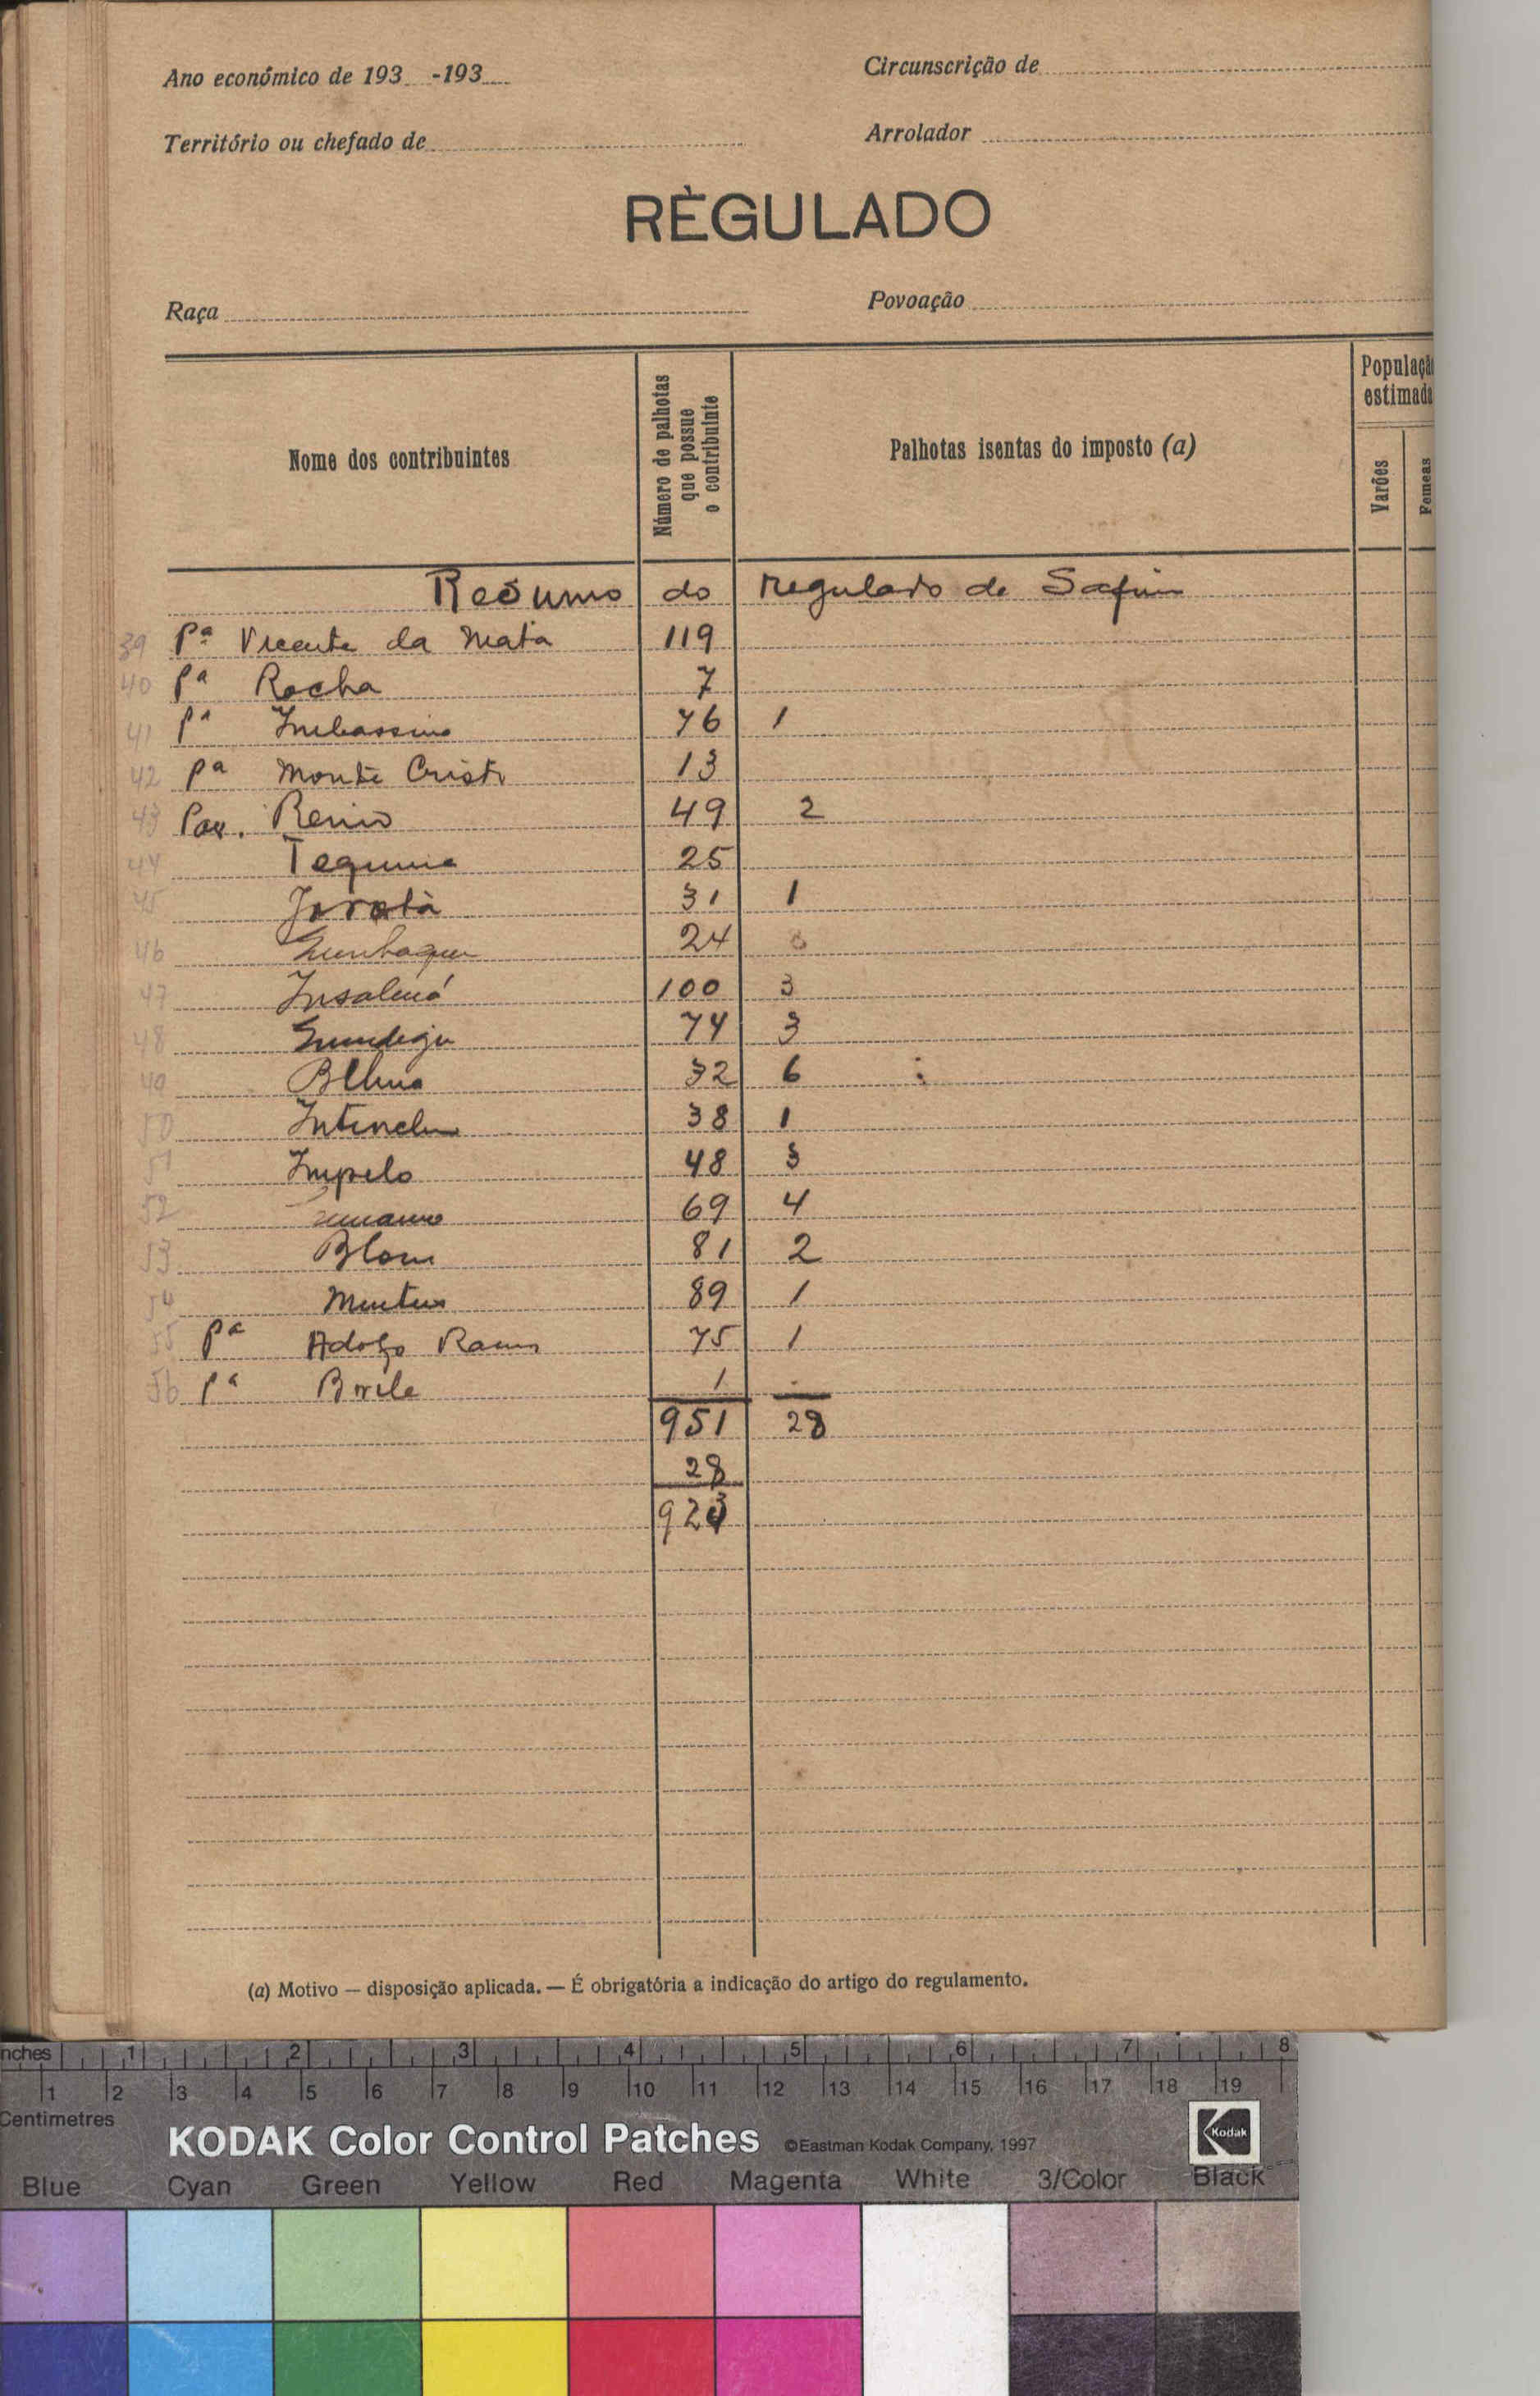 Ano económico de 193 -193
Circunscrição de
Território ou chefado de
Arrolador
RÈGULADO
Raça
Povoação
Nome dos contribuintes
Número de palhotas que possue o contribuinte
Palhotas isentas do imposto (a)
Populaçã
estimada
Varões
Femeas
Resumo do regulado de Safim
39 Pª Vicente da Mata 119
40 Pª Rocha 7
41 Pª 76 1
42 Pª Monte Cristo 13
43 Pov. Reino 49 2
44 Tequma 25
45 Jorotà 31 1
46 24
47 Insalmá 100 3
48 74 3
49 32 6
50 38 1
51 Impelo 48 3
52 69 4
53 Blom 81 2
54 89 1
55 Pª Adolfo Ramos 75 1
56 Pª 1
951 28
28
923
(a) Motivo — disposição aplicada. — É obrigatória a indicação do artigo do regulamento.
nches 1 2 3 4 5 6 7 8
1 2 3 4 5 6 7 8 9 10 11 12 13 14 15 16 17 18 19
Centimetres
KODAK Color Control Patches ©Eastman Kodak Company, 1997 Kodak
Blue Cyan Green Yellow Red Magenta White 3/Color Black